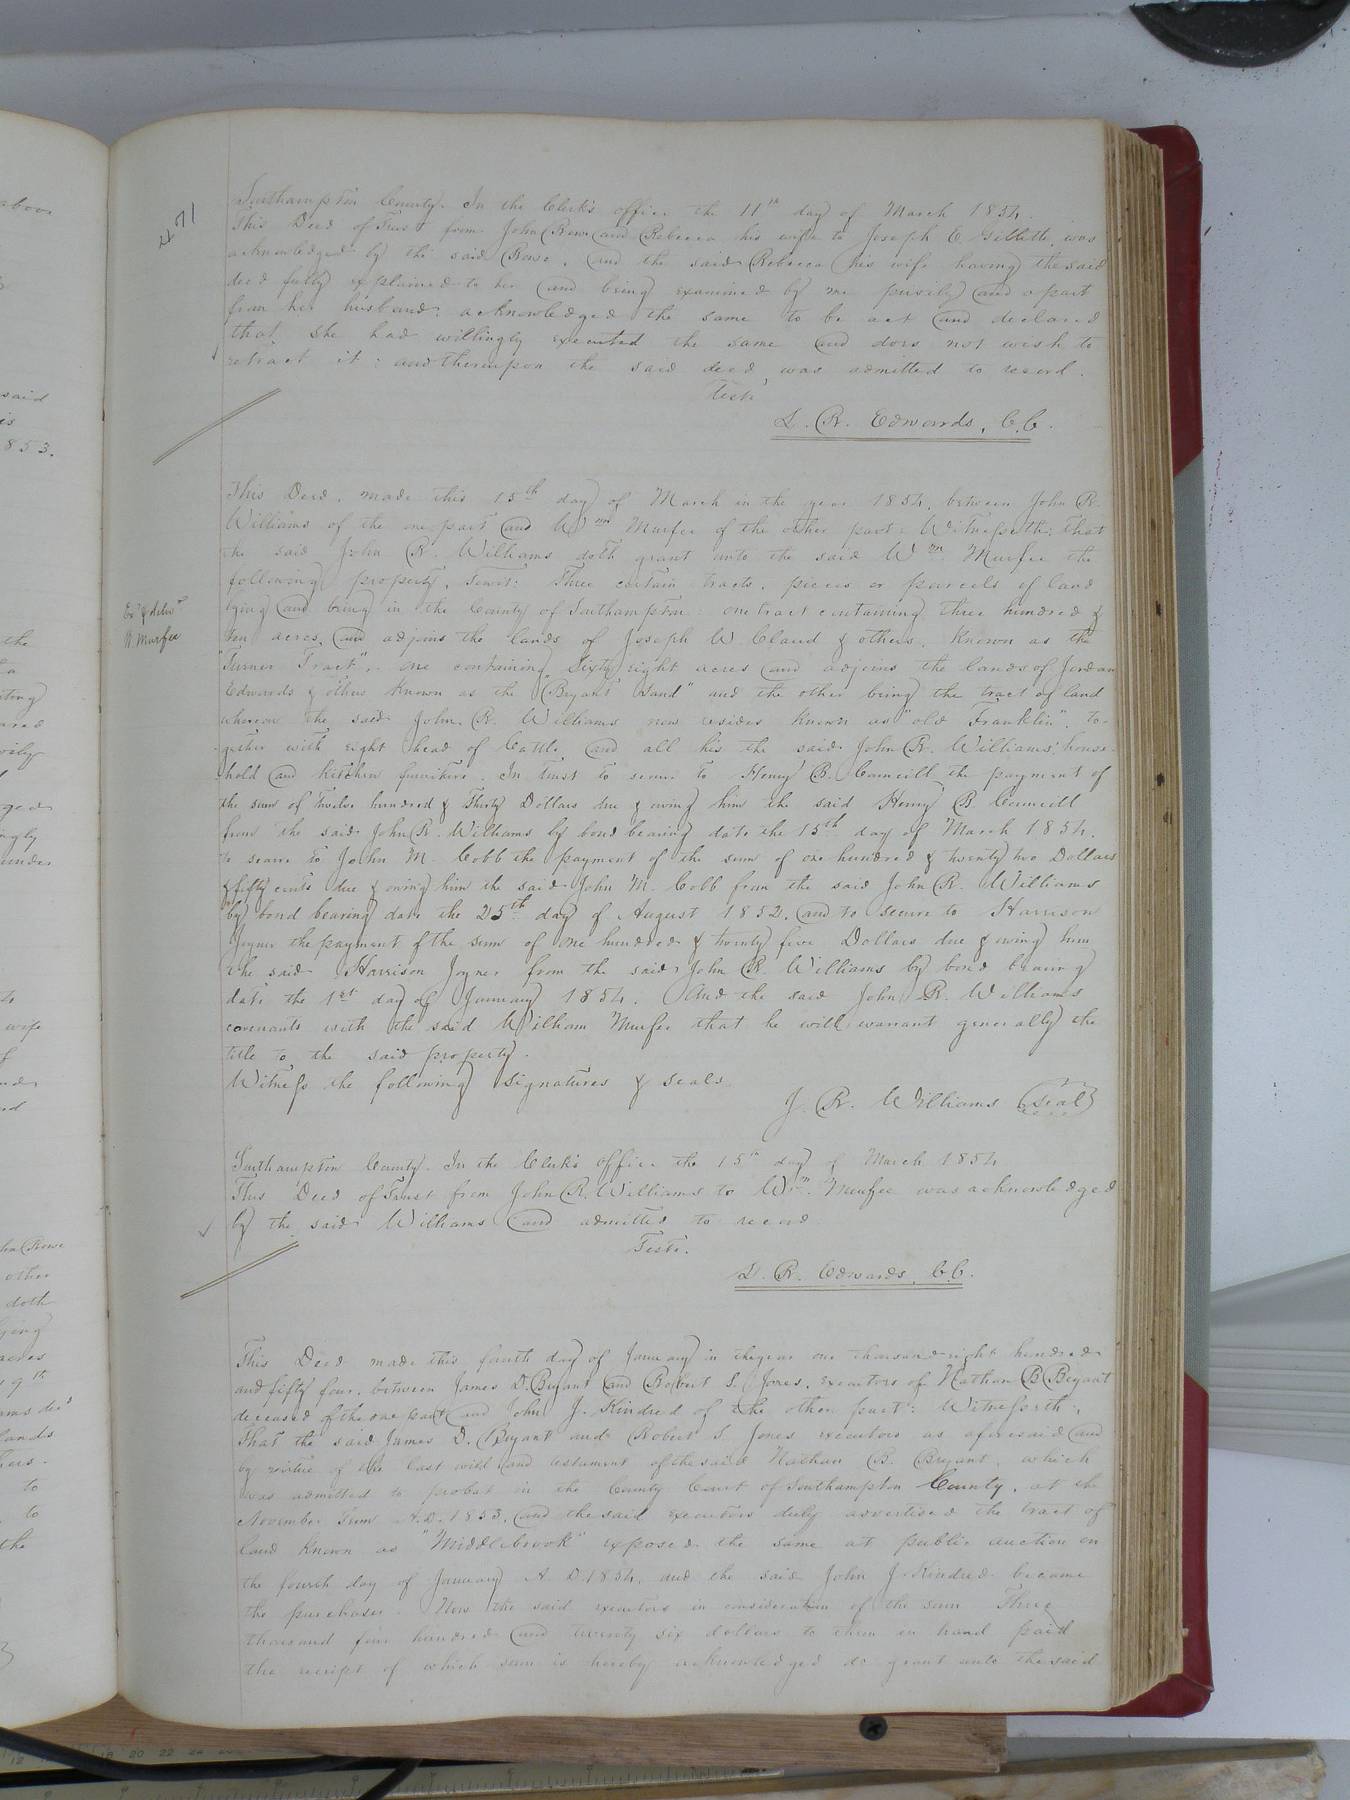 471
Southampton County. In the Clerk's office the 11th day of March 1854.
This Deed of Trust from John Rowe and Rebecca his wife to Joseph E. Gillette, was
acknowledged by the said Rowe, and the said Rebecca his wife having the said
deed fully explained to her and being examined by me privily and apart
from her husband, acknowledged the same to be act and declared
that she had willingly executed the same and does not wish to
retract it: and thereupon the said deed was admitted to record.
Teste,
L. R. Edwards, C.C.
This Deed, made this 15th day of March in the year 1854, between John R.
Williams of the one part and Wm Murfee of the other part: Witnesseth: that
the said John R. Williams doth grant unto the said Wm Murfee the
following property, Towit: Three certain tracts, pieces or parcels of land
lying and being in the County of Southampton: one tract containing three hundred &
ten acres and adjoins the lands of Joseph W Claud & others, Known as the
"Turner Tract", one containing Sixty eight acres and adjoins the lands of Jordan
Edwards & others Known as the "Bryant Land" and the other being the tract of land
whereon the said John R. Williams now resides Known as "old Franklin", to-
gether with eight head of Cattle, and all his the said John R. Williams' house-
hold and kitchen furniture. In trust to secure to Henry B. Councill the payment of
the sum of Twelve hundred & Thirty Dollars due & owing him the said Henry B. Councill
from the said John R. Williams by bond bearing date the 15th day of March 1854,
to secure to John M. Cobb the payment of the sum of one hundred & twenty two Dollars
& fifty cents due & owing him the said John M. Cobb from the said John R. Williams
by bond bearing date the 25th day of August 1852, and to secure to Harrison
Joyner the payment of the sum of one hundred & twenty five Dollars due & owing him
the said Harrison Joyner from the said John R. Williams by bond bearing
date the 1st day of January 1854. And the said John R. Williams
covenants with the said William Murfee that he will warrant generally the
title to the said property.
Witness the following signatures & seals.
J. R. Williams (seal)
Exd & delivd
W. Murfee
Southampton County. In the Clerk's office the 15th day of March 1854
This Deed of Trust from John R. Williams to Wm. Murfee was acknowledged
by the said Williams and admitted to record
Teste.
L. R. Edwards, C.C.
This Deed made this fourth day of January in the year one thousand eight hundred
and fifty four, between James D. Bryant and Robert S. Jones, executors of Nathan B Bryant
deceased of the one part and John J. Kindred of the other part: Witnesseth,
That the said James D. Bryant and Robert S. Jones executors as aforesaid and
by virtue of the last will and testament of the said Nathan B. Bryant, which
was admitted to probat in the County Court of Southampton County, at the
November Term A.D. 1853, and the said executors duly advertised the tract of
land Known as "Middlebrook" exposed the same at public auction on
the fourth day of January A. D. 1854, and the said John J. Kindred became
the purchaser. Now the said executors in consideration of the sum Three
thousand five hundred and twenty six dollars to them in hand paid
the receipt of which sum is hereby acknowledged do grant unto the said